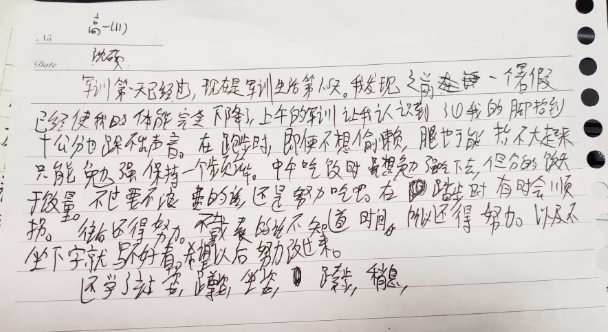 No.
高一(11)
Date
军训第一天已经过, 现在是军训生活第二天。我发现之前 一个暑假
已经使我的体能完全下降了, 上午的军训让我认识到了我的脚抬到
十公分也跺不出声音。在跑步时, 即便不想偷懒, 腿也抬不大起来
只能勉强保持一个步伐。中午吃饭时 想勉强吃下去, 但
于饭量。不过要不浪费的话还是努力吃。在 踏步时有时会顺
拐。往后还得努力。不戴表的话不知道时间, 所以还得努力。以及不
坐下字就写不好看, 希望以后努力改过来。
还学了站姿, 蹲姿, 坐姿, 踏步, 稍息,